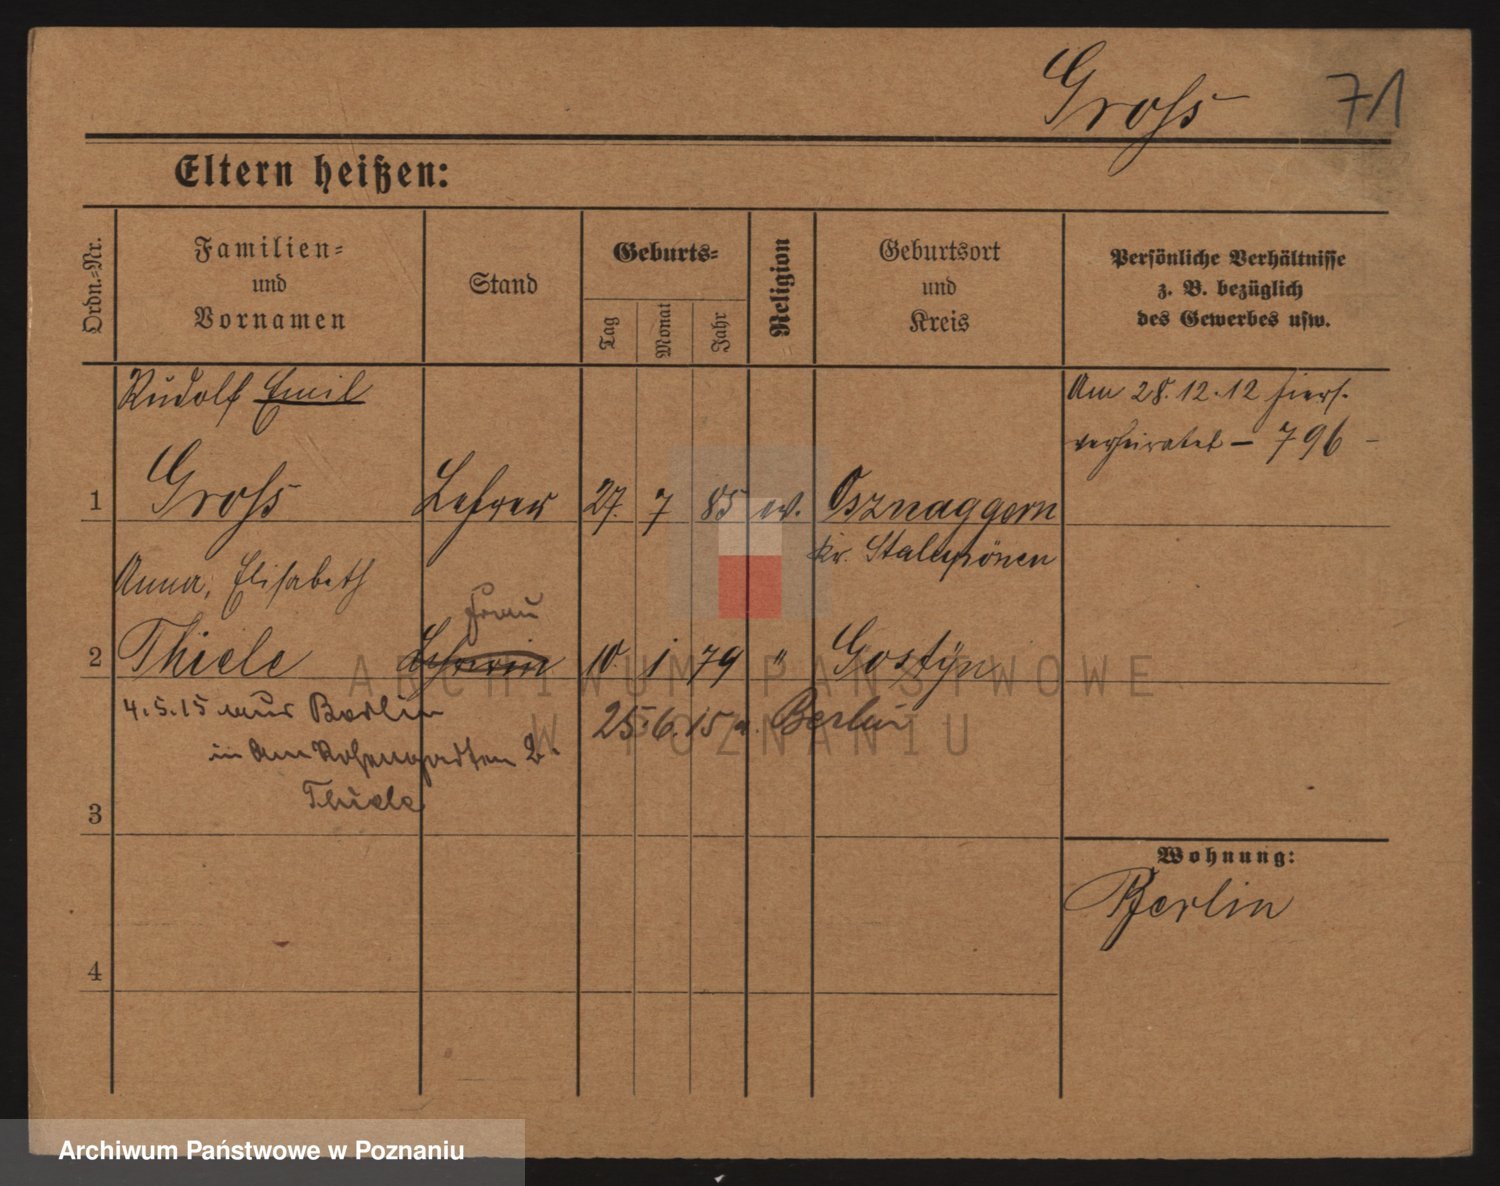 Gross 71
Eltern heißen:
Ordn.-Nr.
Familien-
und
Vornamen
Stand
Geburts-
Tag
Monat
Jahr
Religion
Geburtsort
und
Kreis
Persönliche Verhältnisse
z. B. bezüglich
des Gewerbes usw.
Rudolf Emil
Am 28.12.12 hiers.
verheiratet – 796 –
1 Gross Lehrer 27. 7 85 ev. Osznaggern
Kr. Stalupönen
Anna, Elisabeth
Frau
2 Thiele Lehrerin 10 1 79 " Gostyn
4.5.15 aus Berlin
25.6.15 n. Berlin
in Am 2.
Thiele
3
Wohnung:
Berlin
4
ARCHIWUM PAŃSTWOWE
W POZNANIU
Archiwum Państwowe w Poznaniu